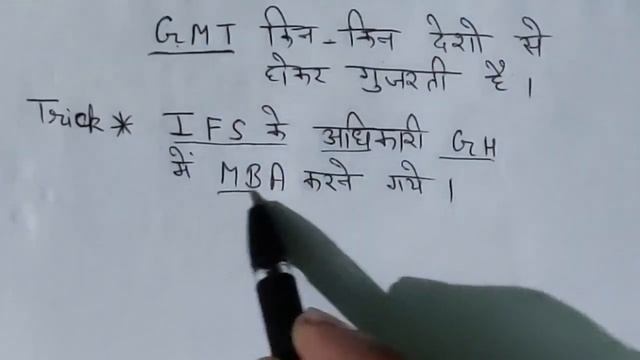 GMT किन-किन देशो से
होकर गुजरती है।
Trick * IFS के अधिकारी GH
में MBA करने गये।